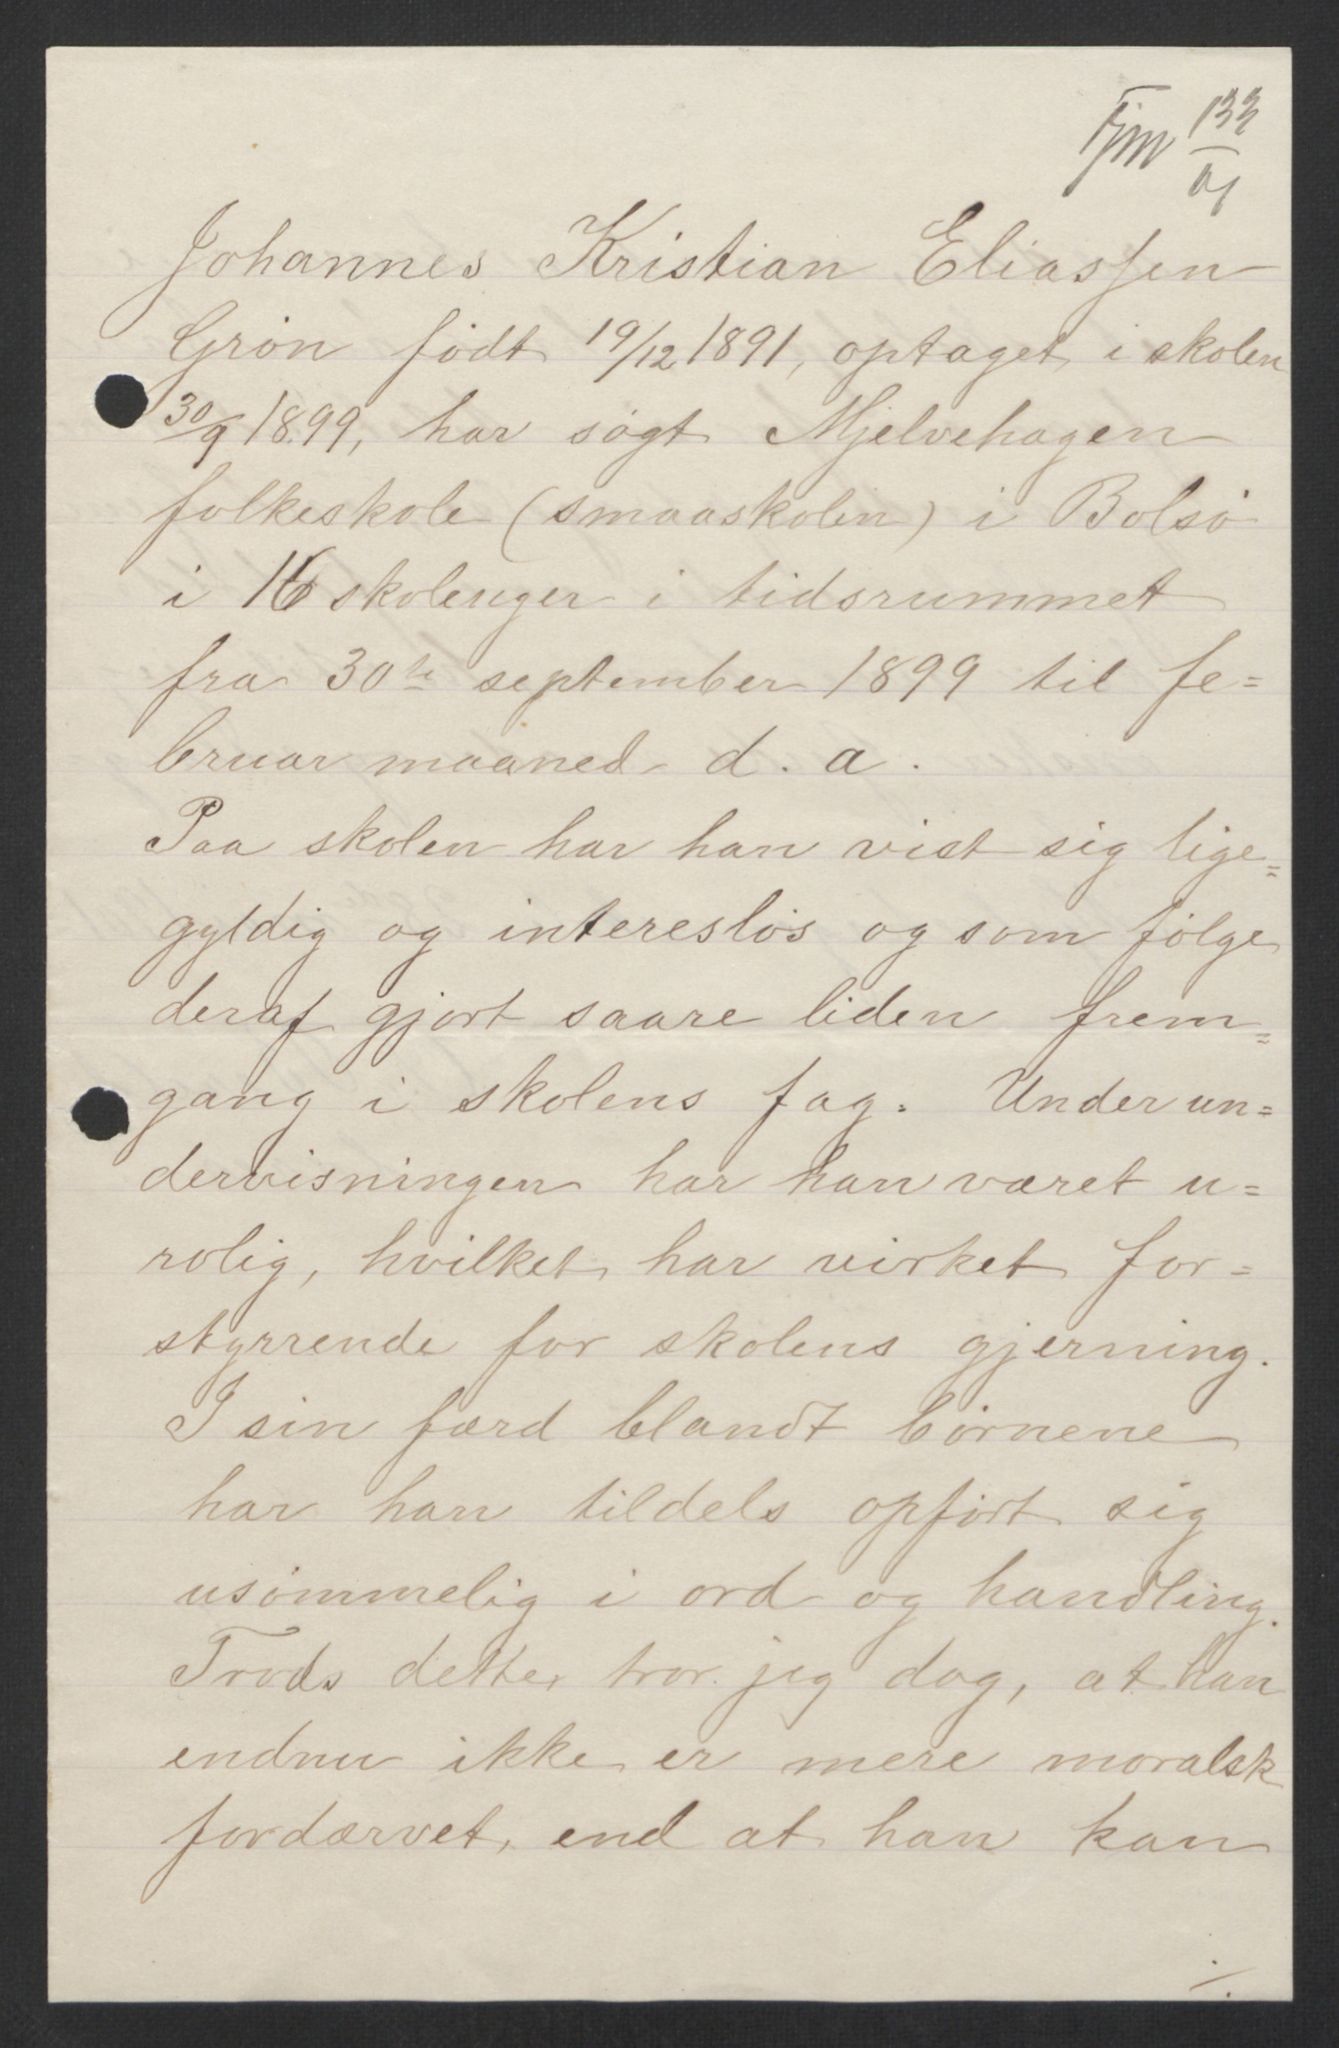 133
01
Johannes Kristian Eliassen
Grön födt 19/12 1891, optaget i skolen
30/9 1899, har sögt Mjelvehagen
folkeskole (smaaskolen) i Bolsö
i 16 skoleuger i tidsrummet
fra 30te september 1899 til fe=
bruar maaned d. a.
Paa skolen har han vist sig lige=
gyldig og interesløs og som fölge
deraf gjort saare liden frem=
gang i skolens fag. Under un=
dervisningen har han været u=
rolig, hvilket har virket for=
styrrende for skolens gjerning.
I sin færd blandt börnene
har han tildels opfört sig
usömmelig i ord og handling.
Trods dette, tror jeg dog, at han
endnu ikke er mere moralsk
fordærvet, end at han kan
./.